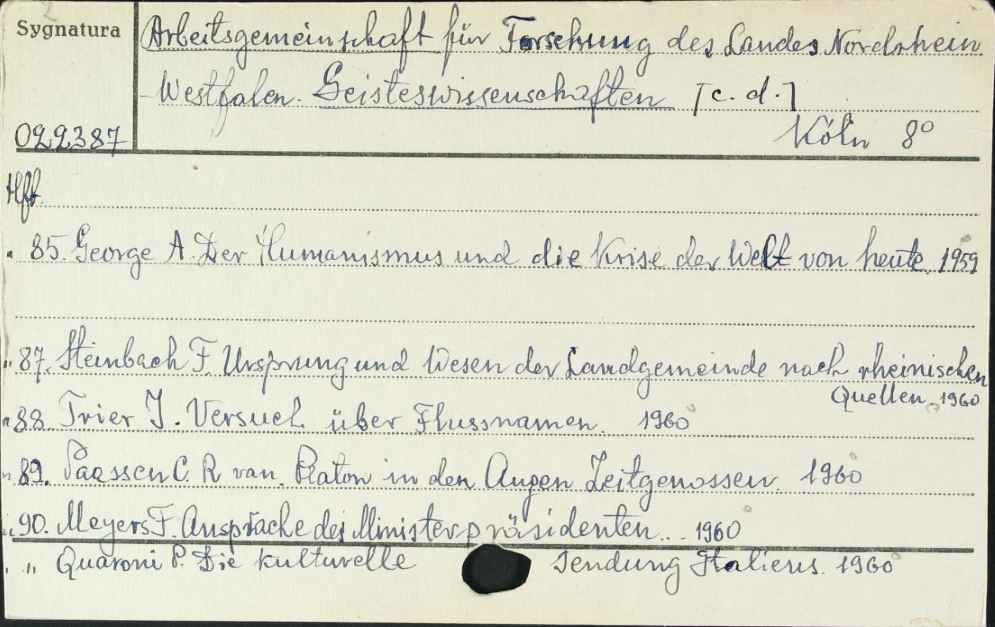 Sygnatura
Arbeitsgemeinschaft für Forschung des Landes Nordrhein
-Westfalen. Geisteswissenschaften [c. d.]
022387
Köln 8°
Hft.
" 85. George A. Der Humanismus und die Krise der Welt von heute. 1959
" 87. Steinbach F. Ursprung und Wesen der Landgemeinde nach rheinischen
Quellen. 1960
" 88. Trier J. Versuch über Flussnamen. 1960
" 89. Paassen C. R. van. Platon in den Augen Zeitgenossen. 1960
" 90. Meyers F. Ansprache des Ministerpräsidenten... 1960
" " Quaroni P. Die kulturelle Sendung Italiens. 1960